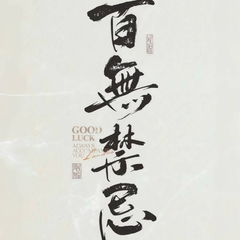 百無禁忌
GOOD
LUCK
ALWAYS
YOU